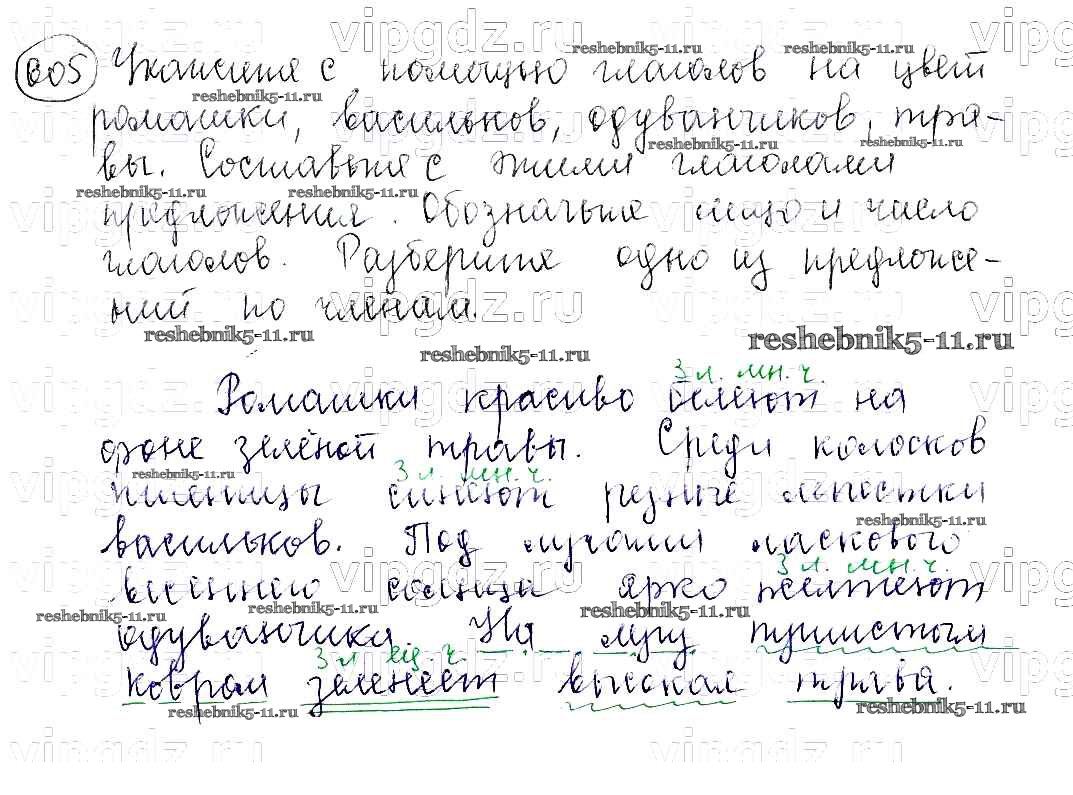 605 Укажите с помощью глаголов на цвет
ромашки, васильков, одуванчиков, тра-
вы. Составьте с этими глаголами
предложения. Обозначьте лицо и число
глаголов. Разберите одно из предложе-
ний по членам.
reshebnik5-11.ru
3 л. мн. ч.
Ромашки красиво белеют на
фоне зелёной травы. Среди колосков
3 л. мн. ч.
пшеницы синеют резные лепестки
васильков. Под лучами ласкового
3 л. мн. ч.
весеннего солнца ярко желтеют
одуванчики. На лугу пушистым
3 л. ед. ч.
ковром зеленеет высокая трава.
vipgdz.ru